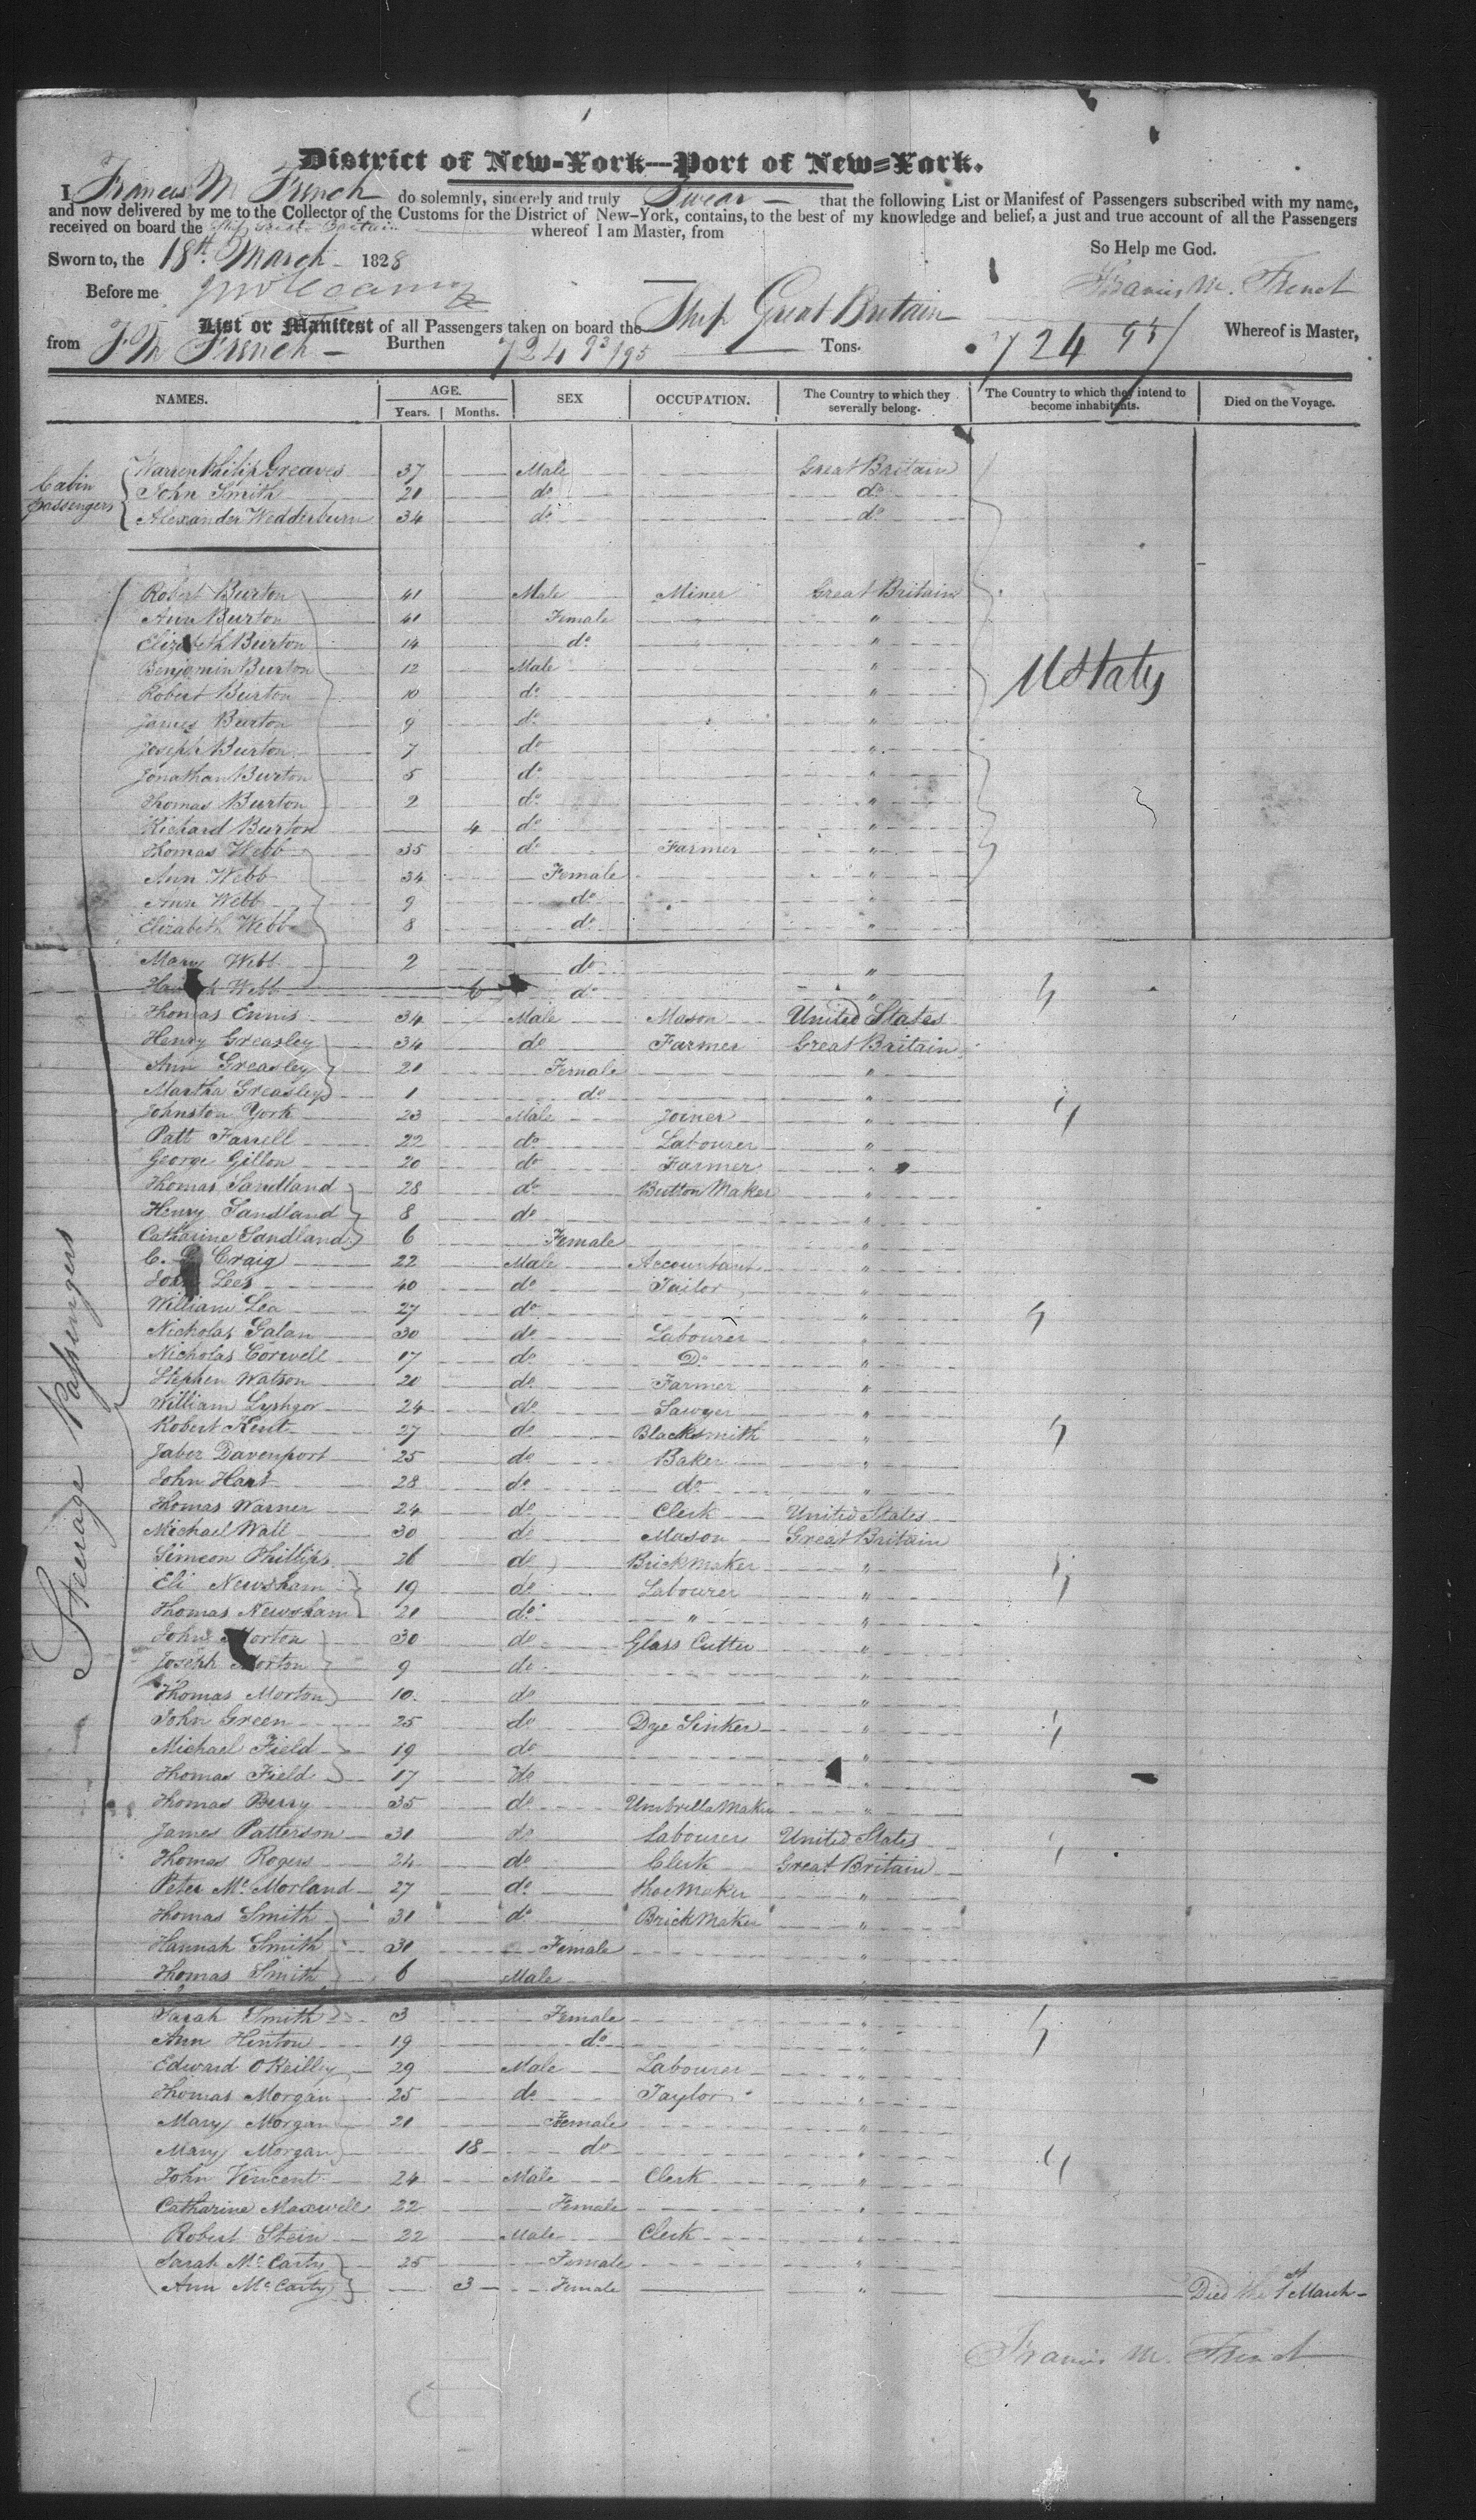 District of New-York—Port of New-York.
I Francis M French do solemnly, sincerely and truly Swear that the following List or Manifest of Passengers subscribed with my name,
and now delivered by me to the Collector of the Customs for the District of New-York, contains, to the best of my knowledge and belief, a just and true account of all the Passengers
received on board the Ship Great Britain whereof I am Master, from
So Help me God.
Sworn to, the 18th March 1828
Francis M. French
Before me
List or Manifest of all Passengers taken on board the Ship Great Britain Whereof is Master,
from F M French Burthen 724 93/95 Tons. 724 95
NAMES. AGE. Years. Months. SEX OCCUPATION. The Country to which they severally belong. The Country to which they intend to become inhabitants. Died on the Voyage.
Cabin passengers
Warren Philip Greaves 37 Male Great Britain
John Smith 21 do do
Alexander Wedderburn 34 do do
Steerage Passengers
U States
Robert Burton 41 Male Miner Great Britain
Ann Burton 41 Female "
Elizabeth Burton 14 do "
Benjamin Burton 12 Male "
Robert Burton 10 do "
James Burton 9 do "
Joseph Burton 7 do "
Jonathan Burton 5 do "
Thomas Burton 2 do "
Richard Burton 4 do "
Thomas Webb 35 do Farmer "
Ann Webb 34 Female "
Ann Webb 9 do "
Elizabeth Webb 8 do "
Mary Webb 2 do "
Webb 6 do "
Thomas Ennis 34 Male Mason United States
Henry Greasley 34 do Farmer Great Britain
Ann Greasley 21 Female "
Martha Greasley 1 do "
Johnston York 23 Male Joiner "
Patt Farrell 22 do Labourer "
George Gillon 20 do Farmer "
Thomas Sandland 28 do Button Maker "
Henry Sandland 8 do "
Catharine Sandland 6 Female "
C. Craig 22 Male Accountant "
John Lees 40 do Tailor "
William Lea 27 do "
Nicholas Galan 30 do Labourer "
Nicholas Corwell 17 do Do "
Stephen Watson 20 do Farmer "
William 24 do Sawyer "
Robert Kent 27 do Blacksmith "
Jabez Davenport 25 do Baker "
John Hart 28 do do "
Thomas Warner 24 do Clerk United States
Michael Wall 30 do Mason Great Britain
Simeon Phillips 26 do Brickmaker "
Eli Newsham 19 do Labourer "
Thomas Newsham 21 do " "
John Morton 30 do Glass Cutter "
Joseph Morton 9 do "
Thomas Morton 10 do "
John Green 25 do Dye Sinker "
Michael Field 19 do "
Thomas Field 17 do "
Thomas Berry 35 do Umbrella Maker "
James Patterson 31 do Labourer United States
Thomas Rogers 24 do Clerk Great Britain
Peter McMorland 27 do Shoe Maker "
Thomas Smith 31 do Brick Maker "
Hannah Smith 31 Female "
Thomas Smith 6 Male "
Sarah Smith 3 Female "
Ann Hinton 19 do "
Edward OReilley 29 Male Labourer "
Thomas Morgan 25 do Taylor "
Mary Morgan 21 Female "
Mary Morgan 18 do "
John Vincent 24 Male Clerk "
Catharine Maxwell 22 Female "
Robert Stein 22 Male Clerk "
Sarah McCarty 25 Female "
Ann McCarty 3 Female " Died the 1st March
Francis M. French